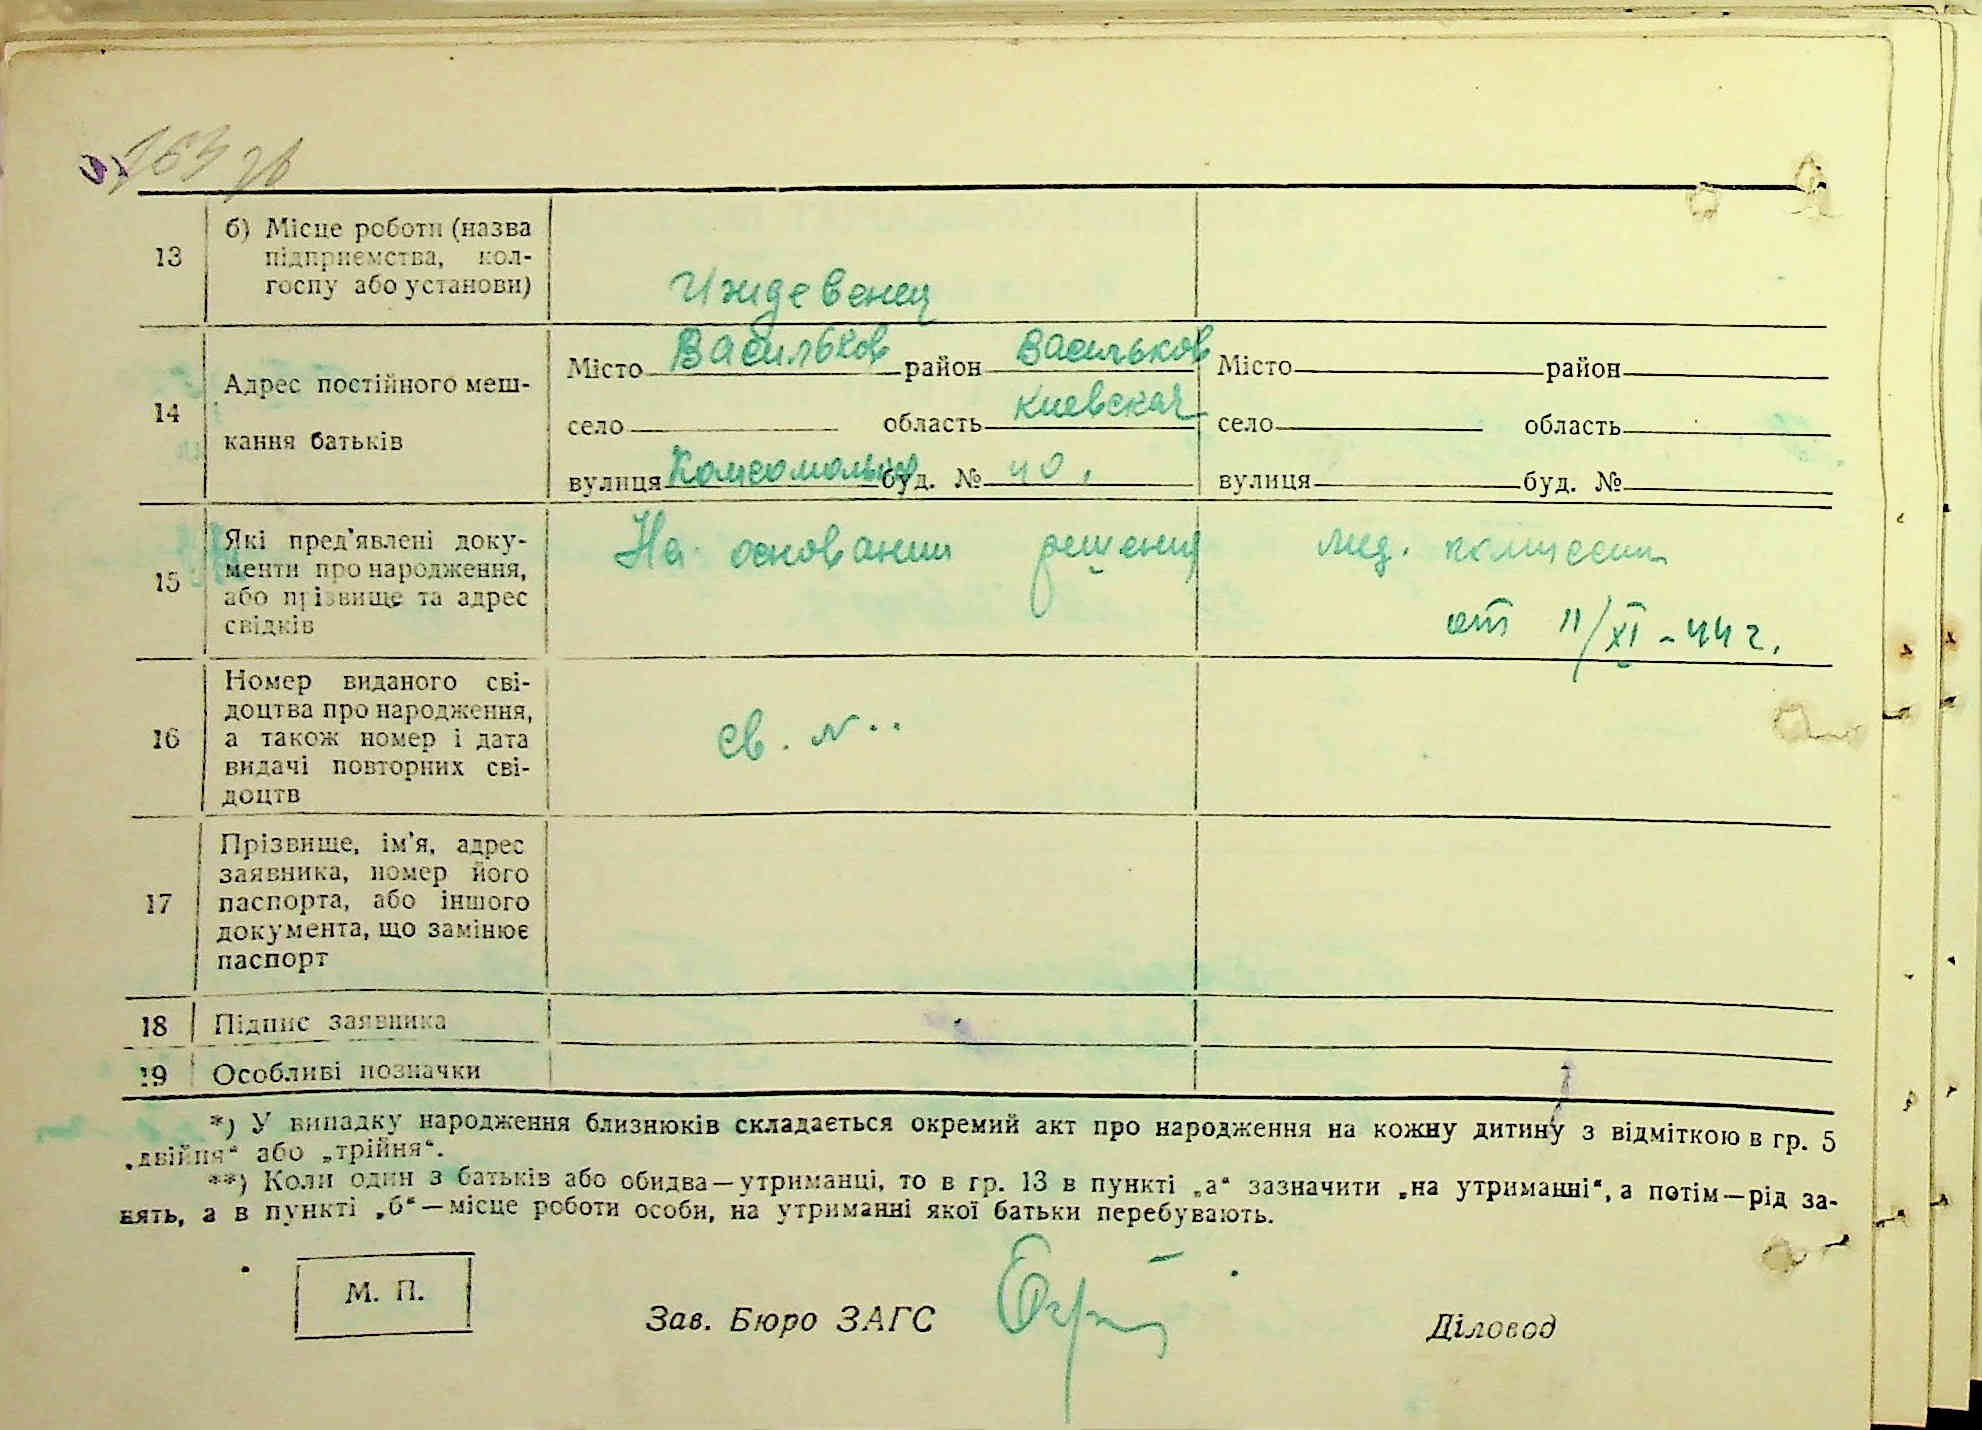 163 зв
13
б) Місце роботи (назва
підприємства, кол-
госпу або установи)
Иждевенец
14
Адрес постійного меш-
кання батьків
Місто Васильков район Васильков
село область Киевская
вулиця Комсомольск буд. № 40.
Місто район
село область
вулиця буд. №
15
Які пред'явлені доку-
менти про народження,
або прізвище та адрес
свідків
На основании решения мед. комиссии
от 11/XI-44 г.
16
Номер виданого сві-
доцтва про народження,
а також номер і дата
видачі повторних сві-
доцтв
св. №..
17
Прізвище, ім'я, адрес
заявника, номер його
паспорта, або іншого
документа, що замінює
паспорт
18 Підпис заявника
19 Особливі позначки
*) У випадку народження близнюків складається окремий акт про народження на кожну дитину з відміткою в гр. 5
„двійня“ або „трійня“.
**) Коли один з батьків або обидва—утриманці, то в гр. 13 в пункті „а“ зазначити „на утриманні“, а потім—рід за-
нять, а в пункті „б“—місце роботи особи, на утриманні якої батьки перебувають.
М. П.
Зав. Бюро ЗАГС
Діловод